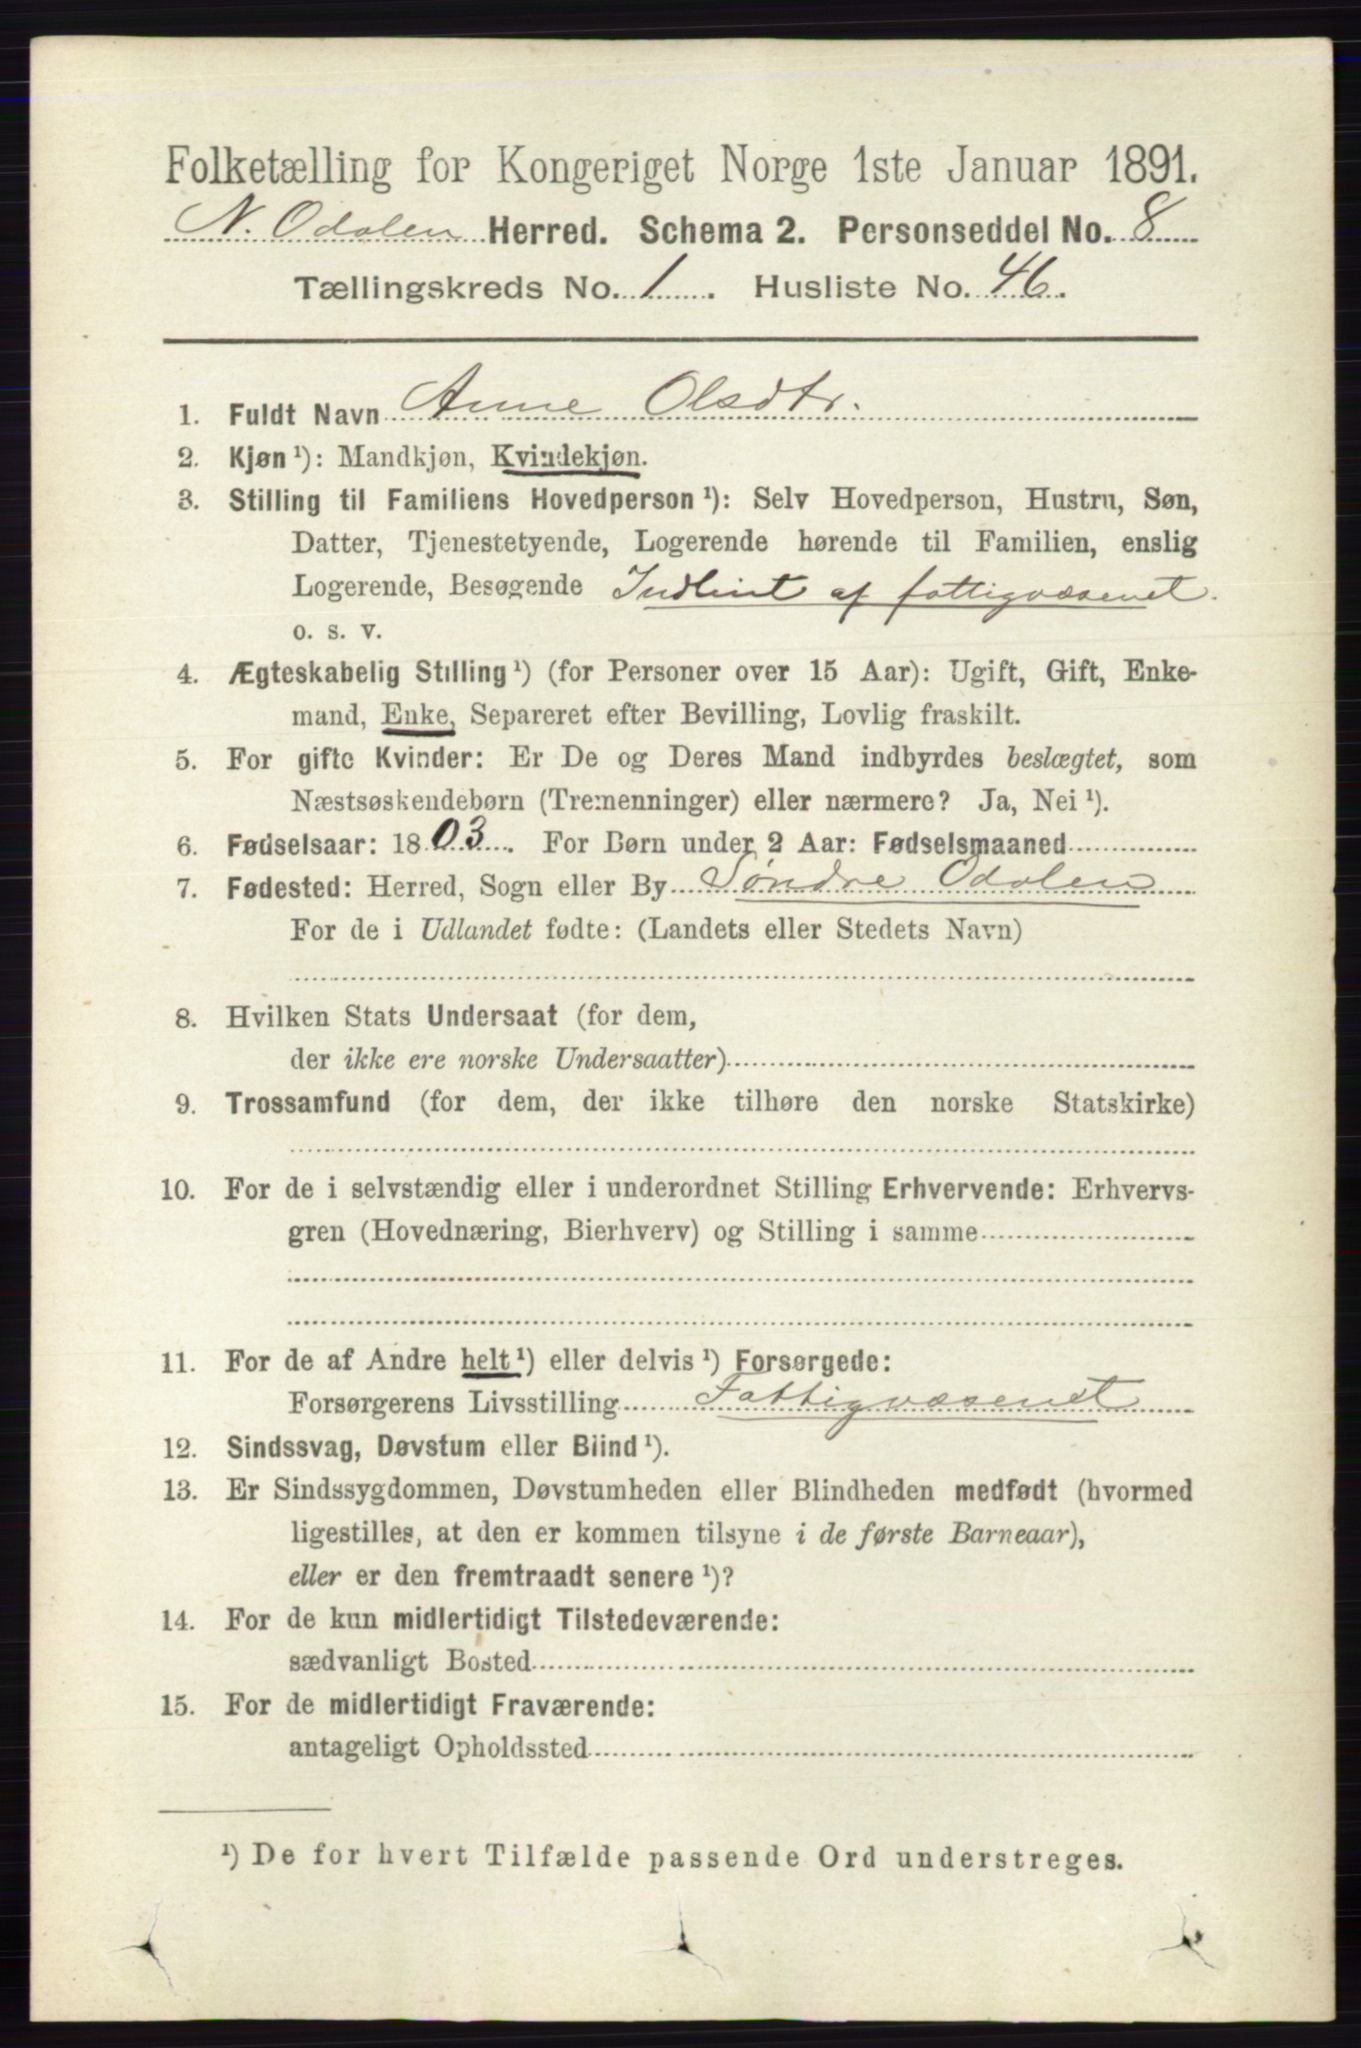 Folketælling for Kongeriget Norge 1ste Januar 1891.
N. Odalen Herred. Schema 2. Personseddel No. 8
Tællingskreds No. 1. Husliste No. 46.
1. Fuldt Navn Anne Olsdtr.
2. Kjøn ¹): Mandkjøn, Kvindekjøn.
3. Stilling til Familiens Hovedperson ¹): Selv Hovedperson, Hustru, Søn,
Datter, Tjenestetyende, Logerende hørende til Familien, enslig
Logerende, Besøgende Indlint af fattigvæsenet.
o. s. v.
4. Ægteskabelig Stilling ¹) (for Personer over 15 Aar): Ugift, Gift, Enke-
mand, Enke, Separeret efter Bevilling, Lovlig fraskilt.
5. For gifte Kvinder: Er De og Deres Mand indbyrdes beslægtet, som
Næstsøskendebørn (Tremenninger) eller nærmere? Ja, Nei ¹).
6. Fødselsaar: 1803. For Børn under 2 Aar: Fødselsmaaned
7. Fødested: Herred, Sogn eller By Søndre Odalen
For de i Udlandet fødte: (Landets eller Stedets Navn)
8. Hvilken Stats Undersaat (for dem,
der ikke ere norske Undersaatter)
9. Trossamfund (for dem, der ikke tilhøre den norske Statskirke)
10. For de i selvstændig eller i underordnet Stilling Erhvervende: Erhvervs-
gren (Hovednæring, Bierhverv) og Stilling i samme
11. For de af Andre helt ¹) eller delvis ¹) Forsørgede:
Forsørgerens Livsstilling Fattigvæsenet
12. Sindssvag, Døvstum eller Blind ¹).
13. Er Sindssygdommen, Døvstumheden eller Blindheden medfødt (hvormed
ligestilles, at den er kommen tilsyne i de første Barneaar),
eller er den fremtraadt senere ¹)?
14. For de kun midlertidigt Tilstedeværende:
sædvanligt Bosted
15. For de midlertidigt Fraværende:
antageligt Opholdssted
¹) De for hvert Tilfælde passende Ord understreges.